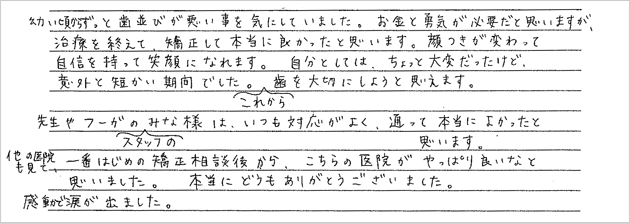 幼い頃からずっと歯並びが悪い事を気にしていました。お金と勇気が必要だと思いますが、
治療を終えて、矯正して本当に良かったと思います。顔つきが変わって
自信を持って笑顔になれます。自分としては、ちょっと大変だったけど、
意外と短かい期間でした。歯を大切にしようと思えます。
これから
先生やフーがのみな様は、いつも対応がよく、通って本当によかったと
スタッフの
思います。
他の医院も見て、一番はじめの矯正相談後から、こちらの医院がやっぱり良いなと
思いました。本当にどうもありがとうございました。
感動で涙が出ました。